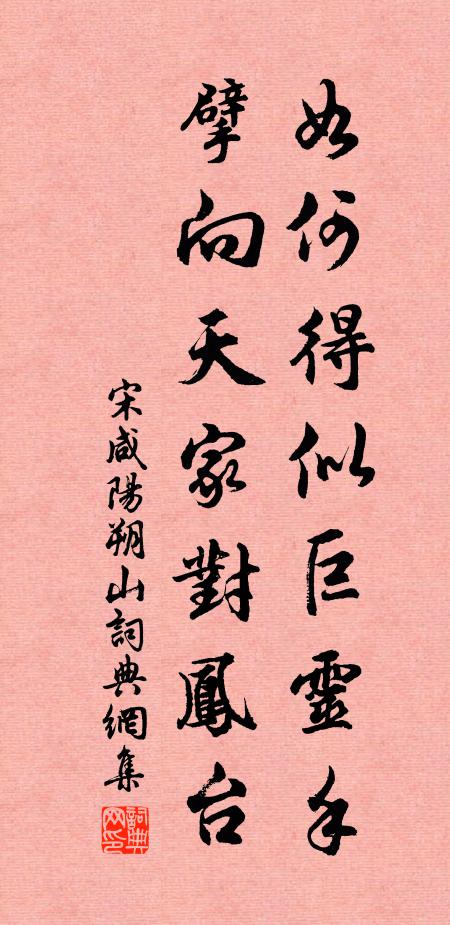 如何得似巨靈手
擘向天家對鳳台
宋咸陽朔山詞典網集
詞典网印